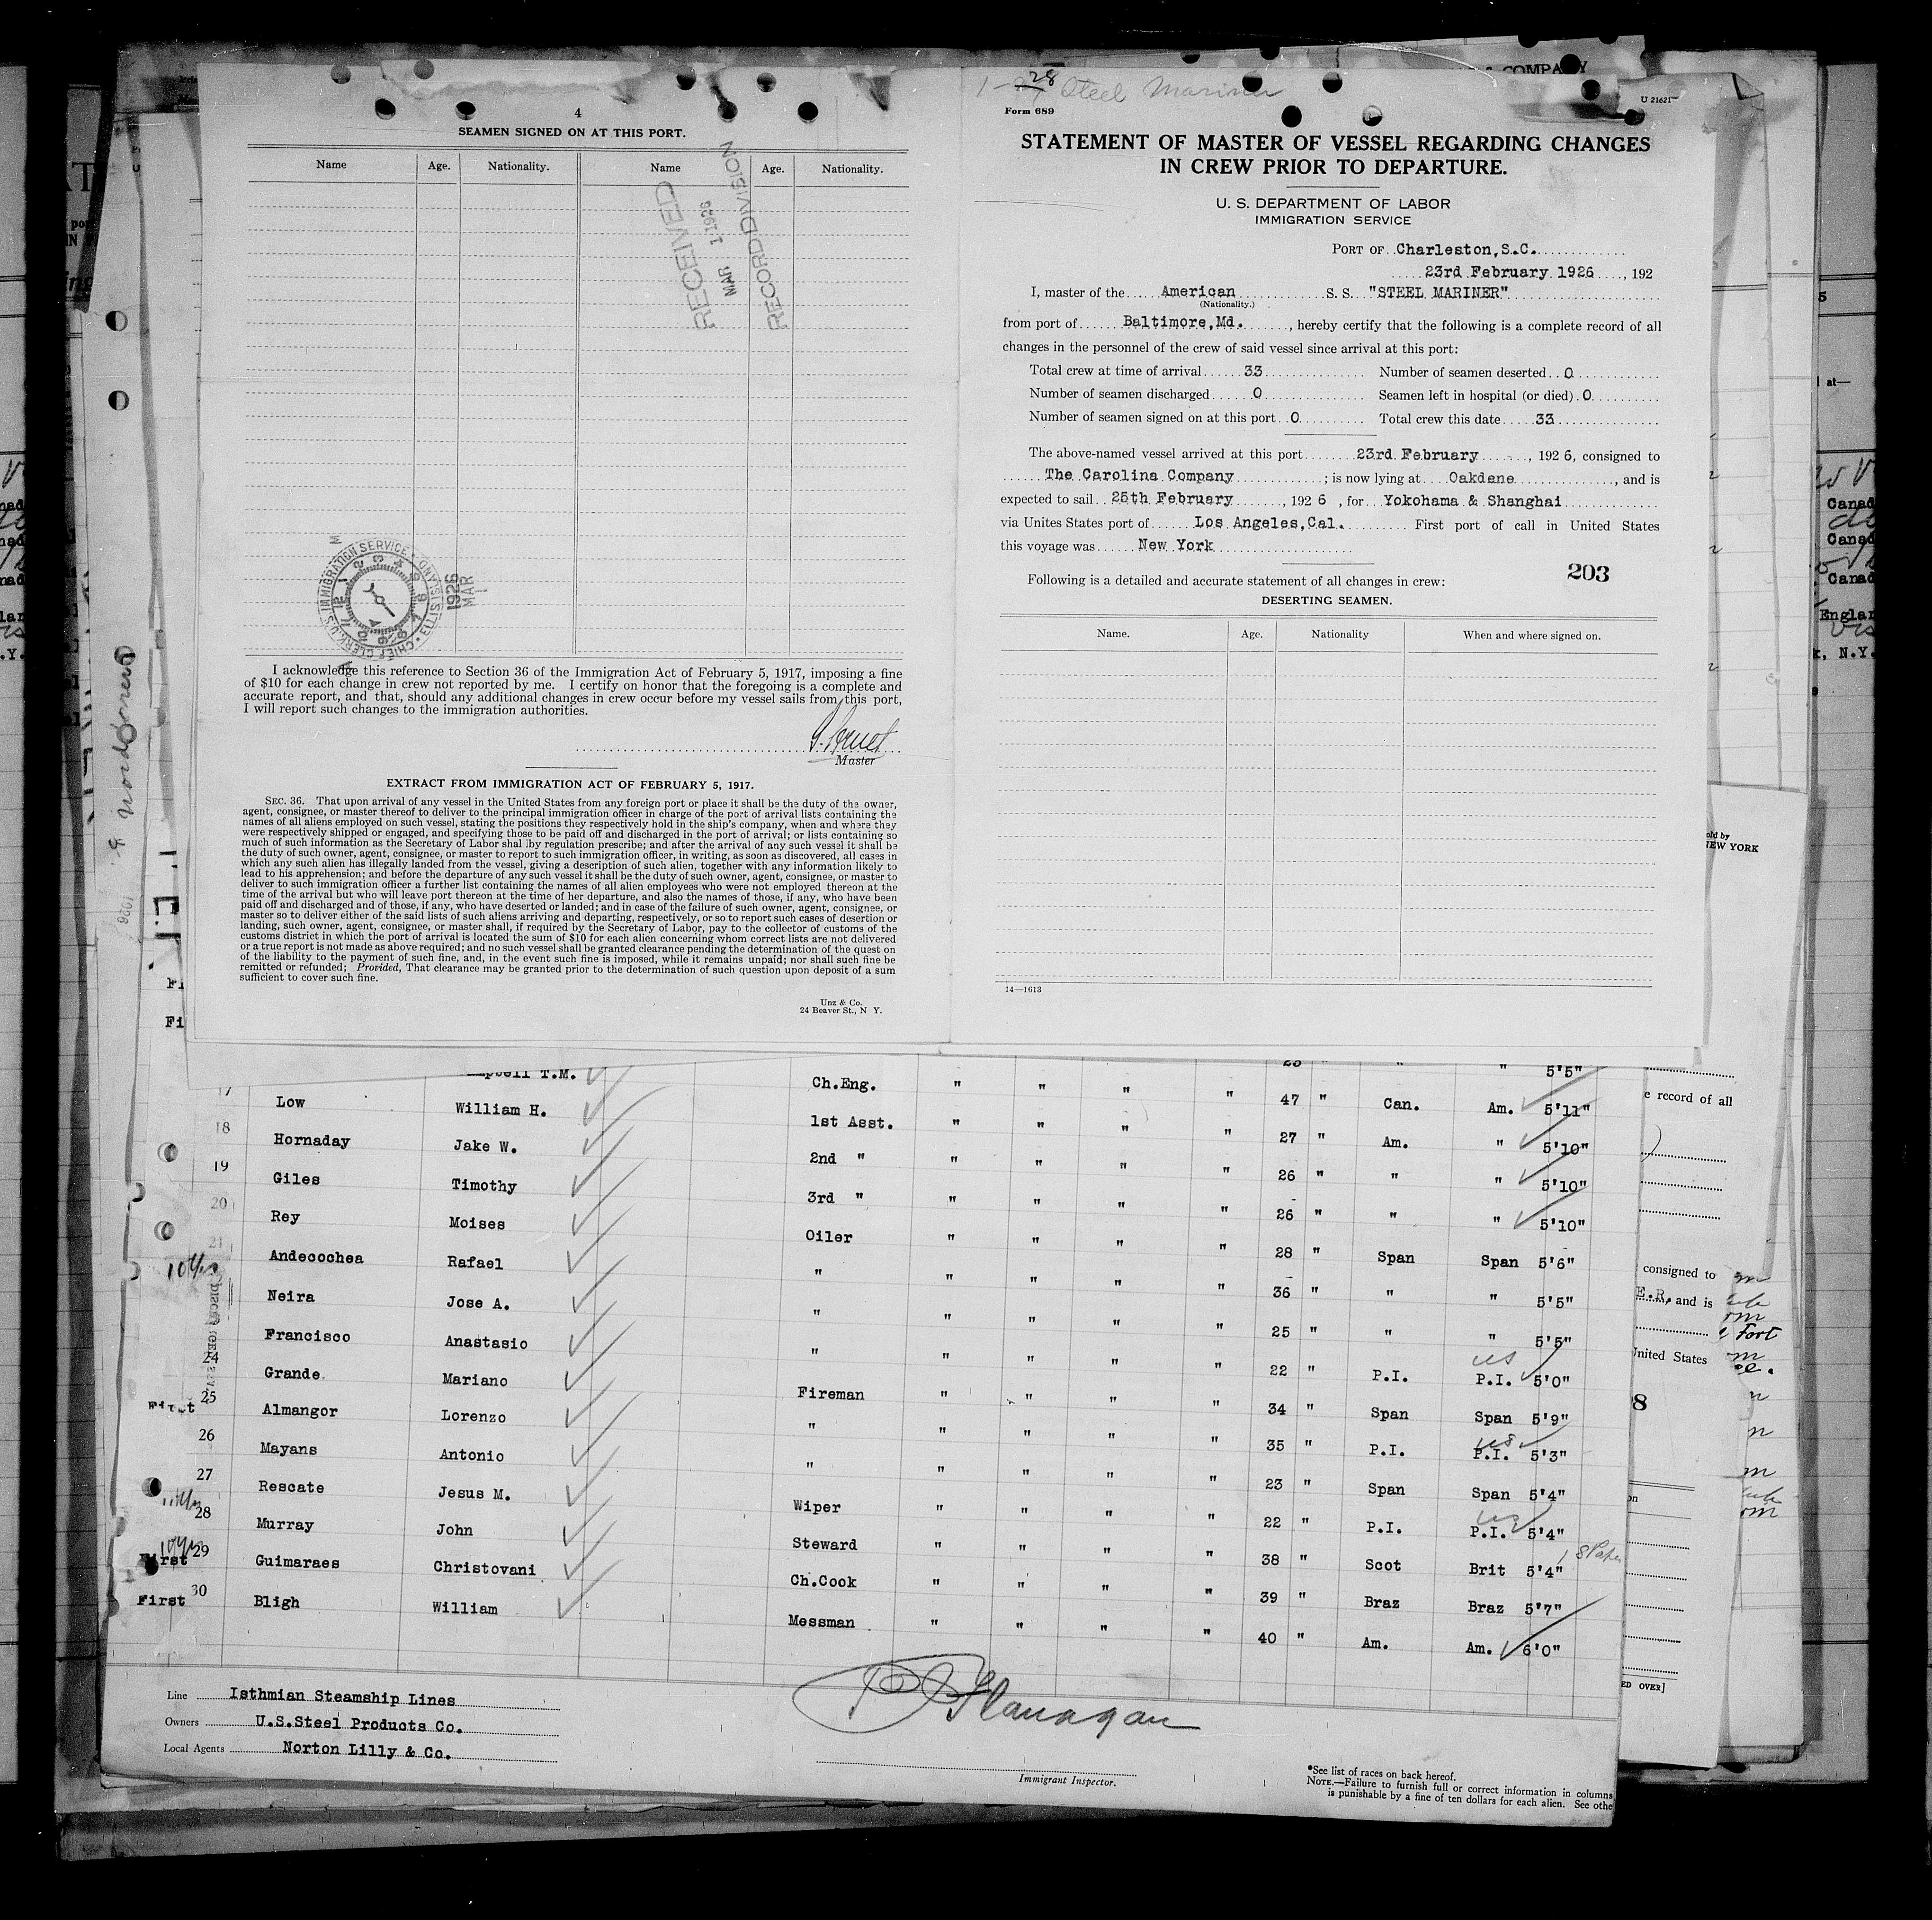 4
SEAMEN SIGNED ON AT THIS PORT.
Name Age. Nationality. Name Age. Nationality.
RECEIVED
MAR 1 1926
RECORD DIVISION
CHIEF CLERK U.S. IMMIGRATION SERVICE ELLIS ISLAND
1926 MAR 1
I acknowledge this reference to Section 36 of the Immigration Act of February 5, 1917, imposing a fine
of $10 for each change in crew not reported by me. I certify on honor that the foregoing is a complete and
accurate report, and that, should any additional changes in crew occur before my vessel sails from this port,
I will report such changes to the immigration authorities.
Master
EXTRACT FROM IMMIGRATION ACT OF FEBRUARY 5, 1917.
SEC. 36. That upon arrival of any vessel in the United States from any foreign port or place it shall be the duty of the owner,
agent, consignee, or master thereof to deliver to the principal immigration officer in charge of the port of arrival lists containing the
names of all aliens employed on such vessel, stating the positions they respectively hold in the ship's company, when and where they
were respectively shipped or engaged, and specifying those to be paid off and discharged in the port of arrival; or lists containing so
much of such information as the Secretary of Labor shal lby regulation prescribe; and after the arrival of any such vessel it shall be
the duty of such owner, agent, consignee, or master to report to such immigration officer, in writing, as soon as discovered, all cases in
which any such alien has illegally landed from the vessel, giving a description of such alien, together with any information likely to
lead to his apprehension; and before the departure of any such vessel it shall be the duty of such owner, agent, consignee, or master to
deliver to such immigration officer a further list containing the names of all alien employees who were not employed thereon at the
time of the arrival but who will leave port thereon at the time of her departure, and also the names of those, if any, who have been
paid off and discharged and of those, if any, who have deserted or landed; and in case of the failure of such owner, agent, consignee, or
master so to deliver either of the said lists of such aliens arriving and departing, respectively, or so to report such cases of desertion or
landing, such owner, agent, consignee, or master shall, if required by the Secretary of Labor, pay to the collector of customs of the
customs district in which the port of arrival is located the sum of $10 for each alien concerning whom correct lists are not delivered
or a true report is not made as above required; and no such vessel shall be granted clearance pending the determination of the quest on
of the liability to the payment of such fine, and, in the event such fine is imposed, while it remains unpaid; nor shall such fine be
remitted or refunded; Provided, That clearance may be granted prior to the determination of such question upon deposit of a sum
sufficient to cover such fine.
Unz & Co.
24 Beaver St., N Y.
28 Steel Mariner
Form 689
U 21621
STATEMENT OF MASTER OF VESSEL REGARDING CHANGES
IN CREW PRIOR TO DEPARTURE.
U. S. DEPARTMENT OF LABOR
IMMIGRATION SERVICE
PORT OF Charleston,S.C.
23rd February 1926, 192
I, master of the American S. S. "STEEL MARINER"
(Nationality.)
from port of Baltimore,Md., hereby certify that the following is a complete record of all
changes in the personnel of the crew of said vessel since arrival at this port:
Total crew at time of arrival 33 Number of seamen deserted 0
Number of seamen discharged 0 Seamen left in hospital (or died) 0
Number of seamen signed on at this port 0 Total crew this date 33
The above-named vessel arrived at this port 23rd February, 192 6, consigned to
The Carolina Company; is now lying at Oakdene, and is
expected to sail 25th February, 192 6, for Yokohama & Shanghai
via Unites States port of Los Angeles,Cal. First port of call in United States
this voyage was New York
203
Following is a detailed and accurate statement of all changes in crew:
DESERTING SEAMEN.
Name. Age. Nationality When and where signed on.
14—1613
T.M. Ch.Eng. " " " " " " 5'5"
17 Low William H. 1st Asst. " " " " 47 " Can. Am. 5'11"
18 Hornaday Jake W. 2nd " " " " " 27 " Am. " 5'10"
19 Giles Timothy 3rd " " " " " 26 " " " 5'10"
20 Rey Moises Oiler " " " " 26 " " " 5'10"
21 Andecochea Rafael " " " " " 28 " Span Span 5'6"
Neira Jose A. " " " " " 36 " " " 5'5"
Francisco Anastasio " " " " " 25 " " " 5'5"
24 Grande Mariano Fireman " " " " 22 " P.I. US P.I. 5'0"
First 25 Almangor Lorenzo " " " " " 34 " Span Span 5'9"
26 Mayans Antonio " " " " " 35 " P.I. US P.I. 5'3"
27 Rescate Jesus M. Wiper " " " " 23 " Span Span 5'4"
28 Murray John Steward " " " " 22 " P.I. US P.I. 5'4"
First 29 Guimaraes Christovani Ch.Cook " " " " 38 " Scot Brit 5'4"
First 30 Bligh William Messman " " " " 39 " Braz Braz 5'7"
40 " Am. Am. 6'0"
Line Isthmian Steamship Lines
Owners U.S.Steel Products Co.
Local Agents Norton Lilly & Co.
Flanagan
Immigrant Inspector.
*See list of races on back hereof.
NOTE.—Failure to furnish full or correct information in columns
is punishable by a fine of ten dollars for each alien. See othe
& COMPANY
old by
NEW YORK
e record of all
consigned to
E.R. and is
United States
8
ED OVER]
Canad
Canad
Canad
Englan
k, N.Y.
Fort